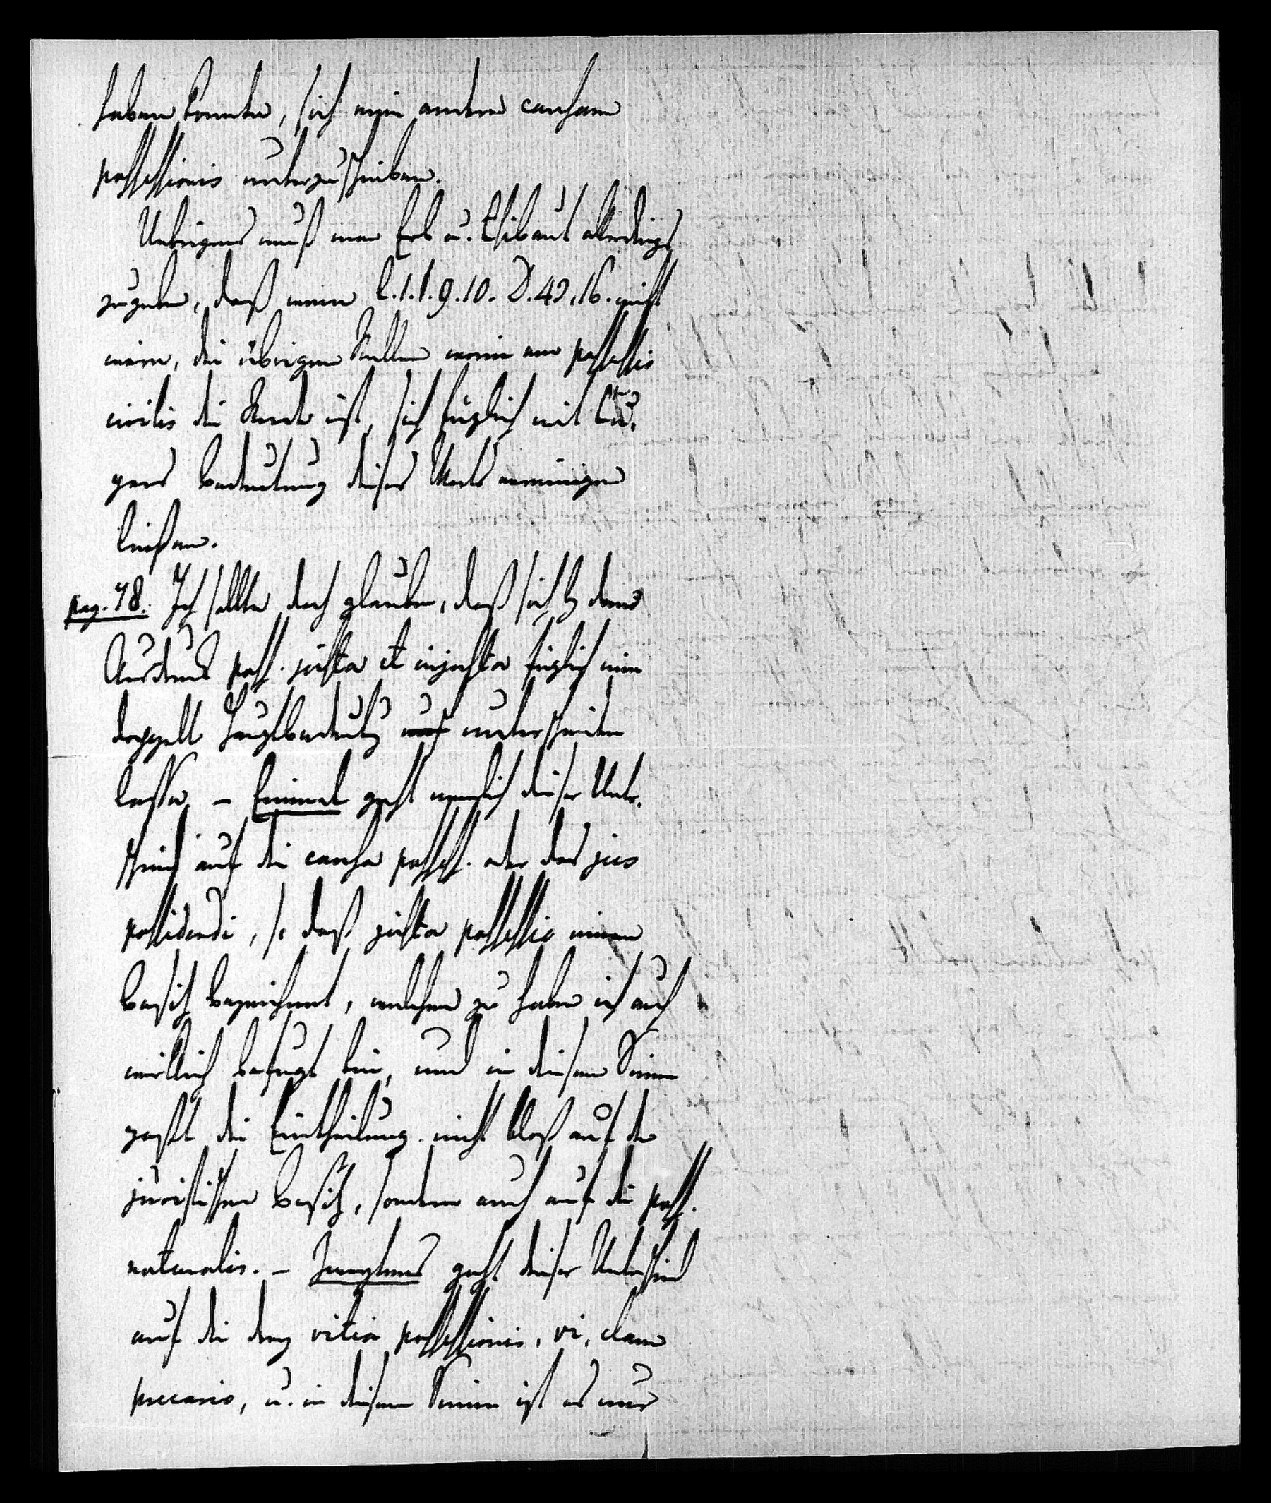 haben konnte, sich eine andere causam
possessionis unterzuschieben.
Uebrigens muß man Erb u. Thibaut allerdings
zugeben, daß, wenn l. 1. §. 9. 10. D. 43, 16. nicht
wäre, die übrigen Stellen worin von possessio
civilis die Rede ist, sich füglich mit Cu,
jaz Bedeutung dieses Worts vereinigen
ließen.
pag. 78. Ich sollte doch glauben, daß sich b. dem
Ausdruck poss. justa et injusta füglich eine
doppelte Hauptbedeutg unterscheiden
lasse, – Einmal geht nemlich dieser Unter,
schied auf die causa possess. oder das jus
possidendi, so daß justa possessio einen
Besitz bezeichnet, welchen zu haben ich auch
wirklich befugt bin, und in diesem Sinne
geht die Eintheilung nicht bloß auf den
juristischen Besitz, sondern auch auf die poss.
naturalis. – Zweytens geht dieser Unterschied
auf die drey vitia possessionis, vi, clam
precario, u. in diesem Sinne ist es nur